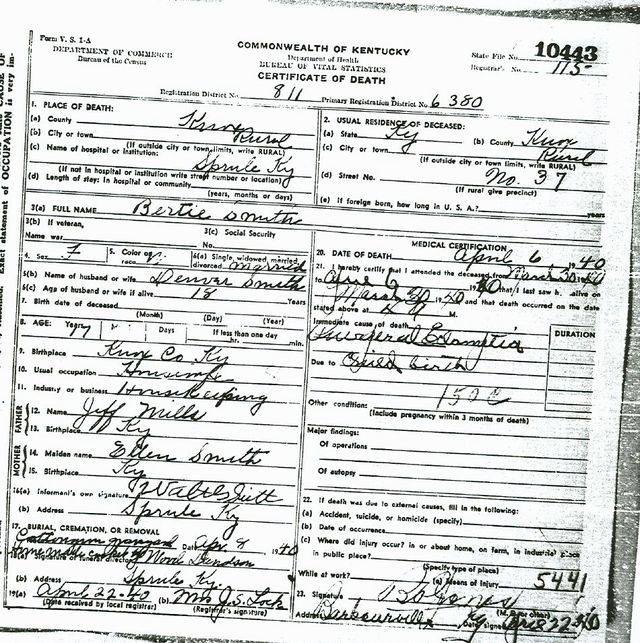 Form V. S. 1-A
DEPARTMENT OF COMMERCE
Bureau of the Census
COMMONWEALTH OF KENTUCKY
Department of Health
BUREAU OF VITAL STATISTICS
CERTIFICATE OF DEATH
State File No. 10443
Registrar's No. 115
Registration District No. 811 Primary Registration District No. 6380
1. PLACE OF DEATH:
(a) County Knox
(b) City or town Rural
(If outside city or town limits, write RURAL)
(c) Name of hospital or institution:
Sprule Ky
(If not in hospital or institution write street number or location)
(d) Length of stay: In hospital or community
(years, months or days)
2. USUAL RESIDENCE OF DECEASED:
(a) State Ky (b) County Knox
(c) City or town Rural
(If outside city or town limits, write RURAL)
(d) Street No. No. 37
(If rural give precinct)
(e) If foreign born, how long in U. S. A.? years
3(a) FULL NAME Bertie Smith
3(b) If veteran,
Name war
3(c) Social Security
No.
4. Sex F 5. Color or race W 6(a) Single, widowed, married, divorced Married
6(b) Name of husband or wife Denver Smith
6(c) Age of husband or wife if alive 18 Years
7. Birth date of deceased
(Month) (Day) (Year)
8. AGE: Years 17 Days If less than one day
hr. min.
9. Birthplace Knox Co Ky
10. Usual occupation Housewife
11. Industry or business Housekeeping
FATHER
12. Name Jeff Mills
13. Birthplace Ky
MOTHER
14. Maiden name Ellen Smith
15. Birthplace Ky
16(a) Informant's own signature
(b) Address Sprule Ky
17. BURIAL, CREMATION, OR REMOVAL
graveyard Date Apr. 8 1940
18(a) Signature of funeral director
Home made casket by
(b) Address Sprule Ky.
19(a) April 22-40 (b) Mrs J. S. Lock
(Date received by local registrar) (Registrar's signature)
MEDICAL CERTIFICATION
20. DATE OF DEATH April 6 1940
21. I hereby certify that I attended the deceased from March 30 1940
to April 6 1940 that I last saw h alive on
March 30 1940 and that death occurred on the date
stated above at M.
Immediate cause of death
DURATION
Puerperal Eclamptia
Due to Child birth
150 C
Other conditions
(Include pregnancy within 3 months of death)
Major findings:
Of operations
Of autopsy
22. If death was due to external causes, fill in the following:
(a) Accident, suicide, or homicide (specify)
(b) Date of occurrence
(c) Where did injury occur? in or about home, on farm, in industrial place
in public place?
(Specify type of place)
While at work? (e) Means of injury 5441
23. Signature
(M. D. or other)
Address Barbourville Ky Date signed
Exact statement of OCCUPATION is very im-